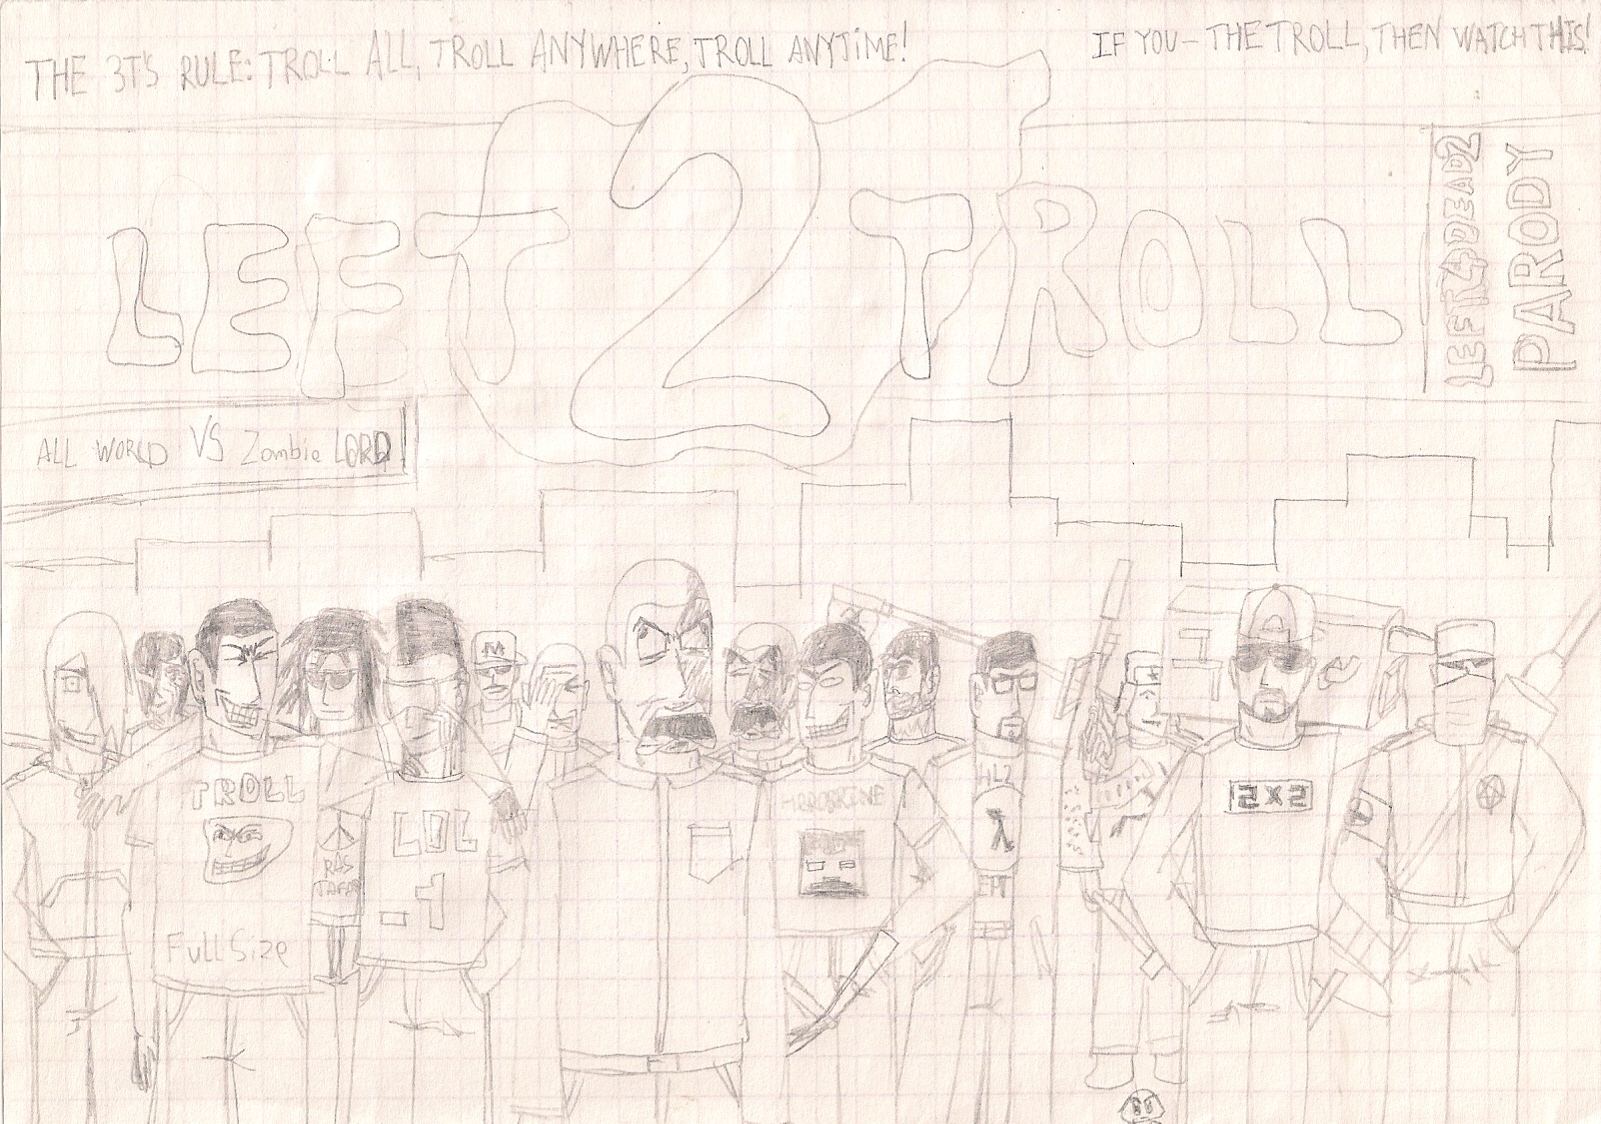 THE 3T'S RULE: TROLL ALL, TROLL ANYWHERE, TROLL ANYTIME!
IF YOU - THE TROLL, THEN WATCH THIS!
LEFT 2 TROLL
LEFT4DEAD2
PARODY
ALL WORLD VS Zombie LORD
M
TROLL
Full Size
RAS
TAFA
LOL
HEROBRINE
HL2
λ
EP1
2x2